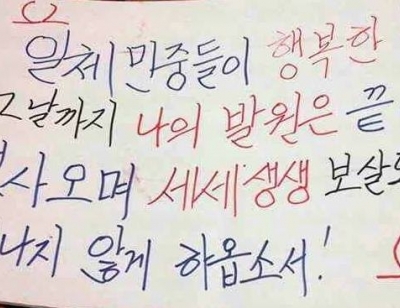 일체 민중들이 행복한
그날까지 나의 발원은 끝
사오며 세세생생 보살도
나지 않게 하옵소서!